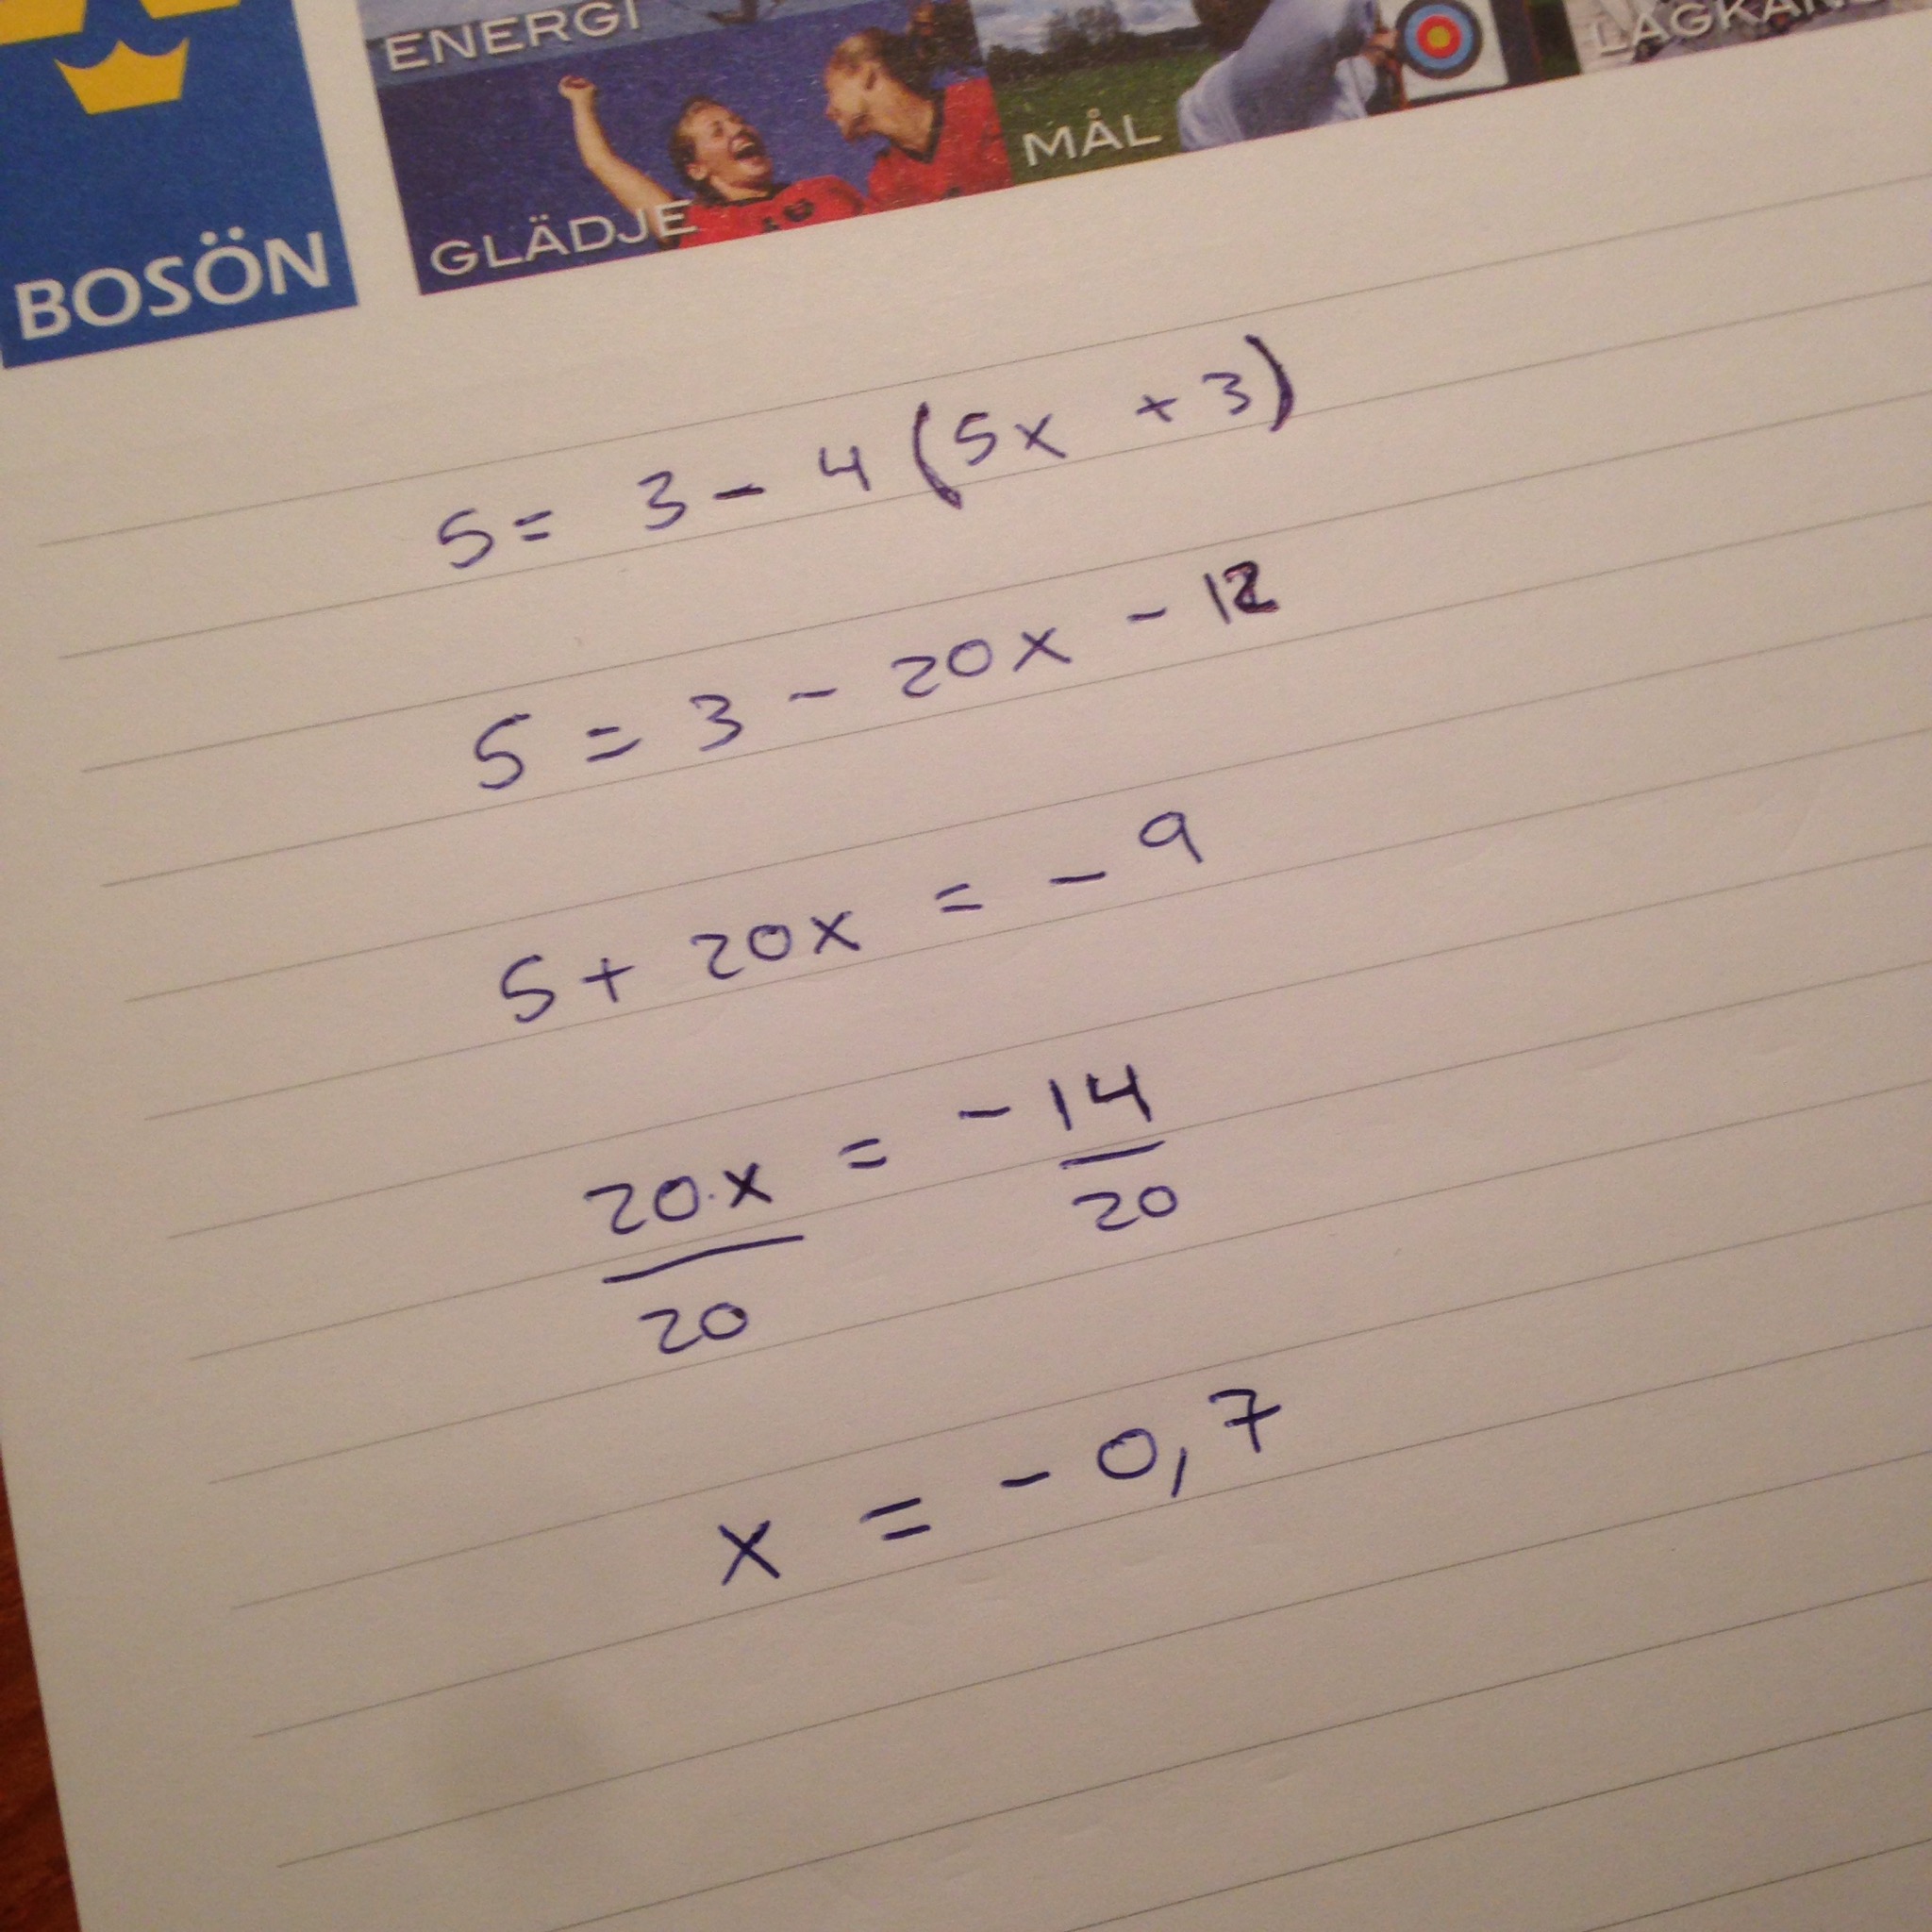 ENERGI
LAGKÄNS
MÅL
GLÄDJE
BOSÖN
5 = 3 - 4 (5x + 3)
5 = 3 - 20x - 12
5 + 20x = - 9
20·x / 20 = - 14 / 20
x = - 0,7